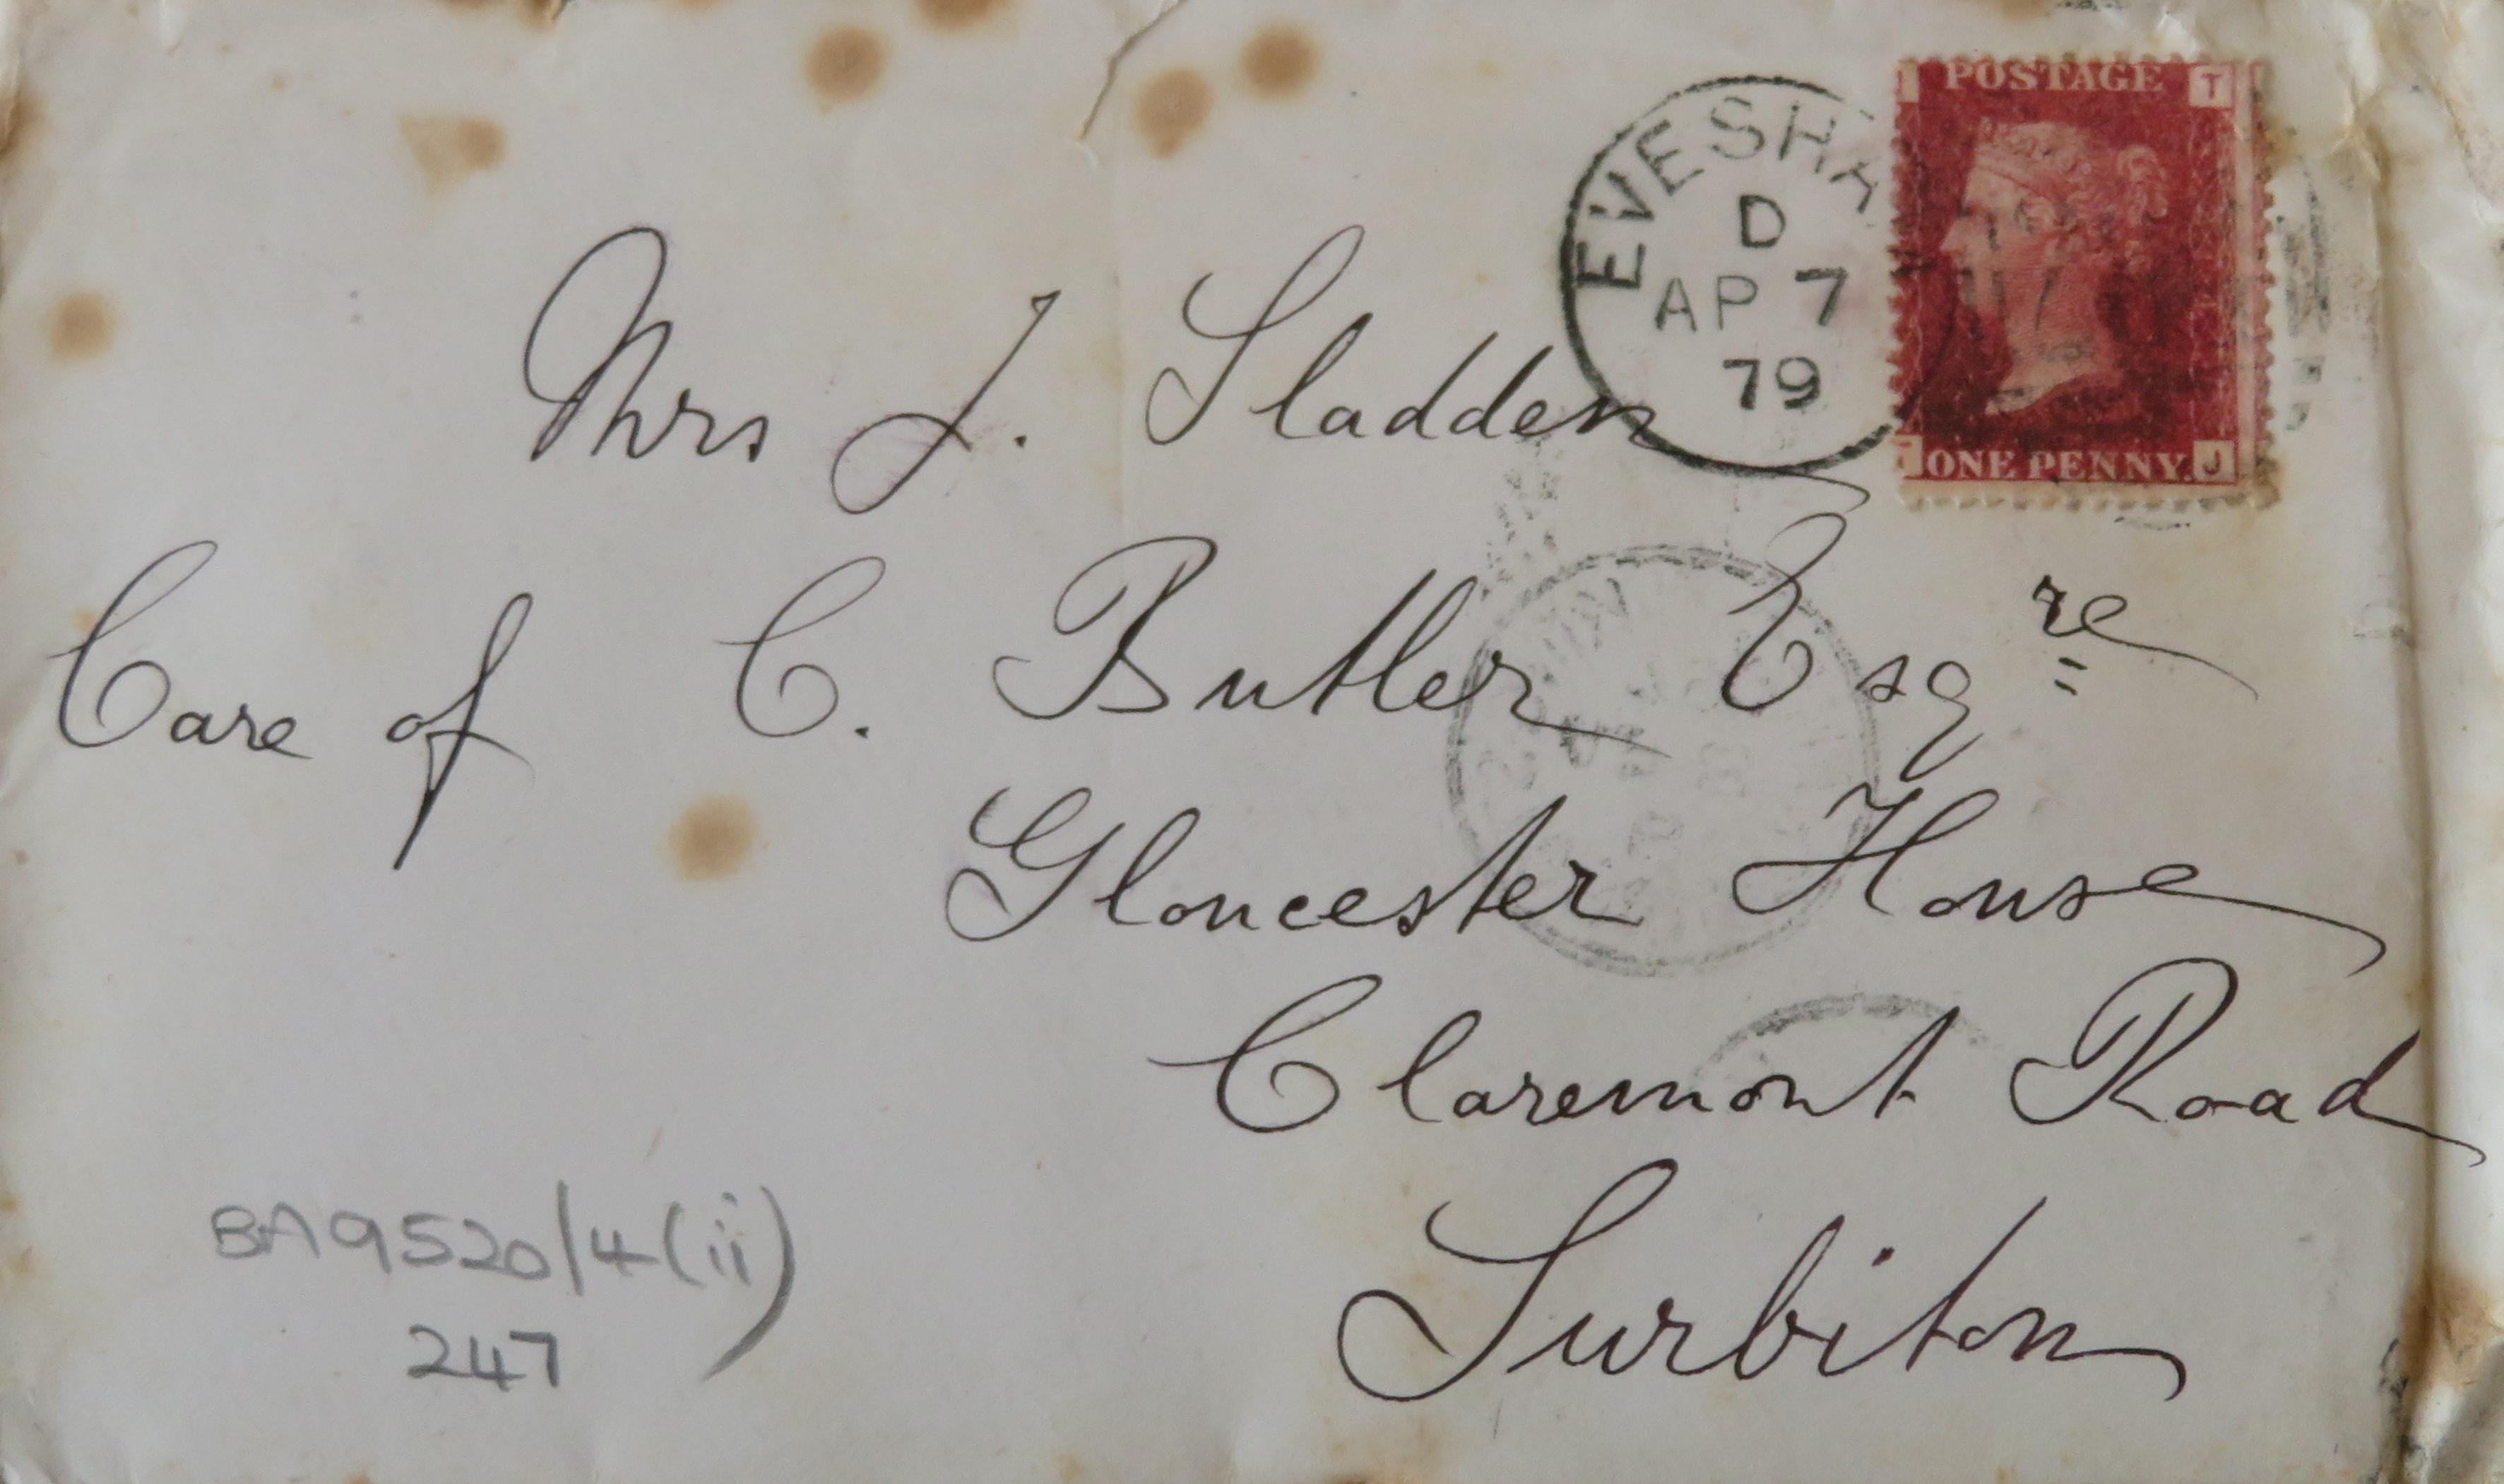 POSTAGE
T
EVESHA
D
AP 7
79
ONE PENNY.
J
Mrs J. Sladden
Care of C. Butler Esqre
Gloucester House
Claremont Road
Surbiton
BA9520/4(ii)
247